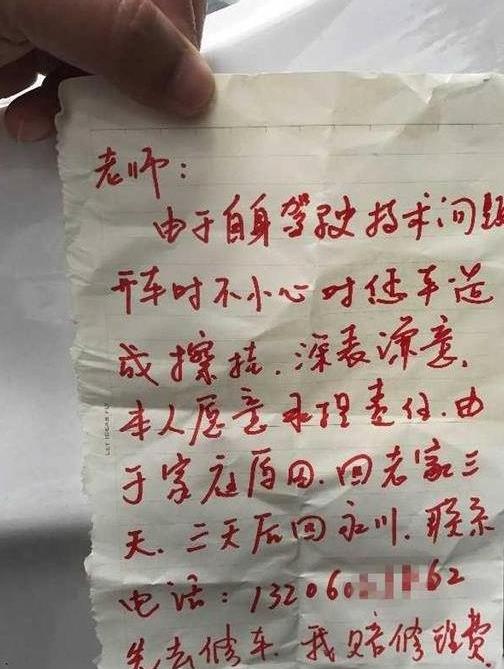 老师：
由于自身驾驶技术问题
开车时不小心对您车造
成擦挂.深表深意.
本人愿意承担责任.由
于家庭原因.回老家三
天.三天后回永川.联系
电话：13206062
先去修车.我赔修理费